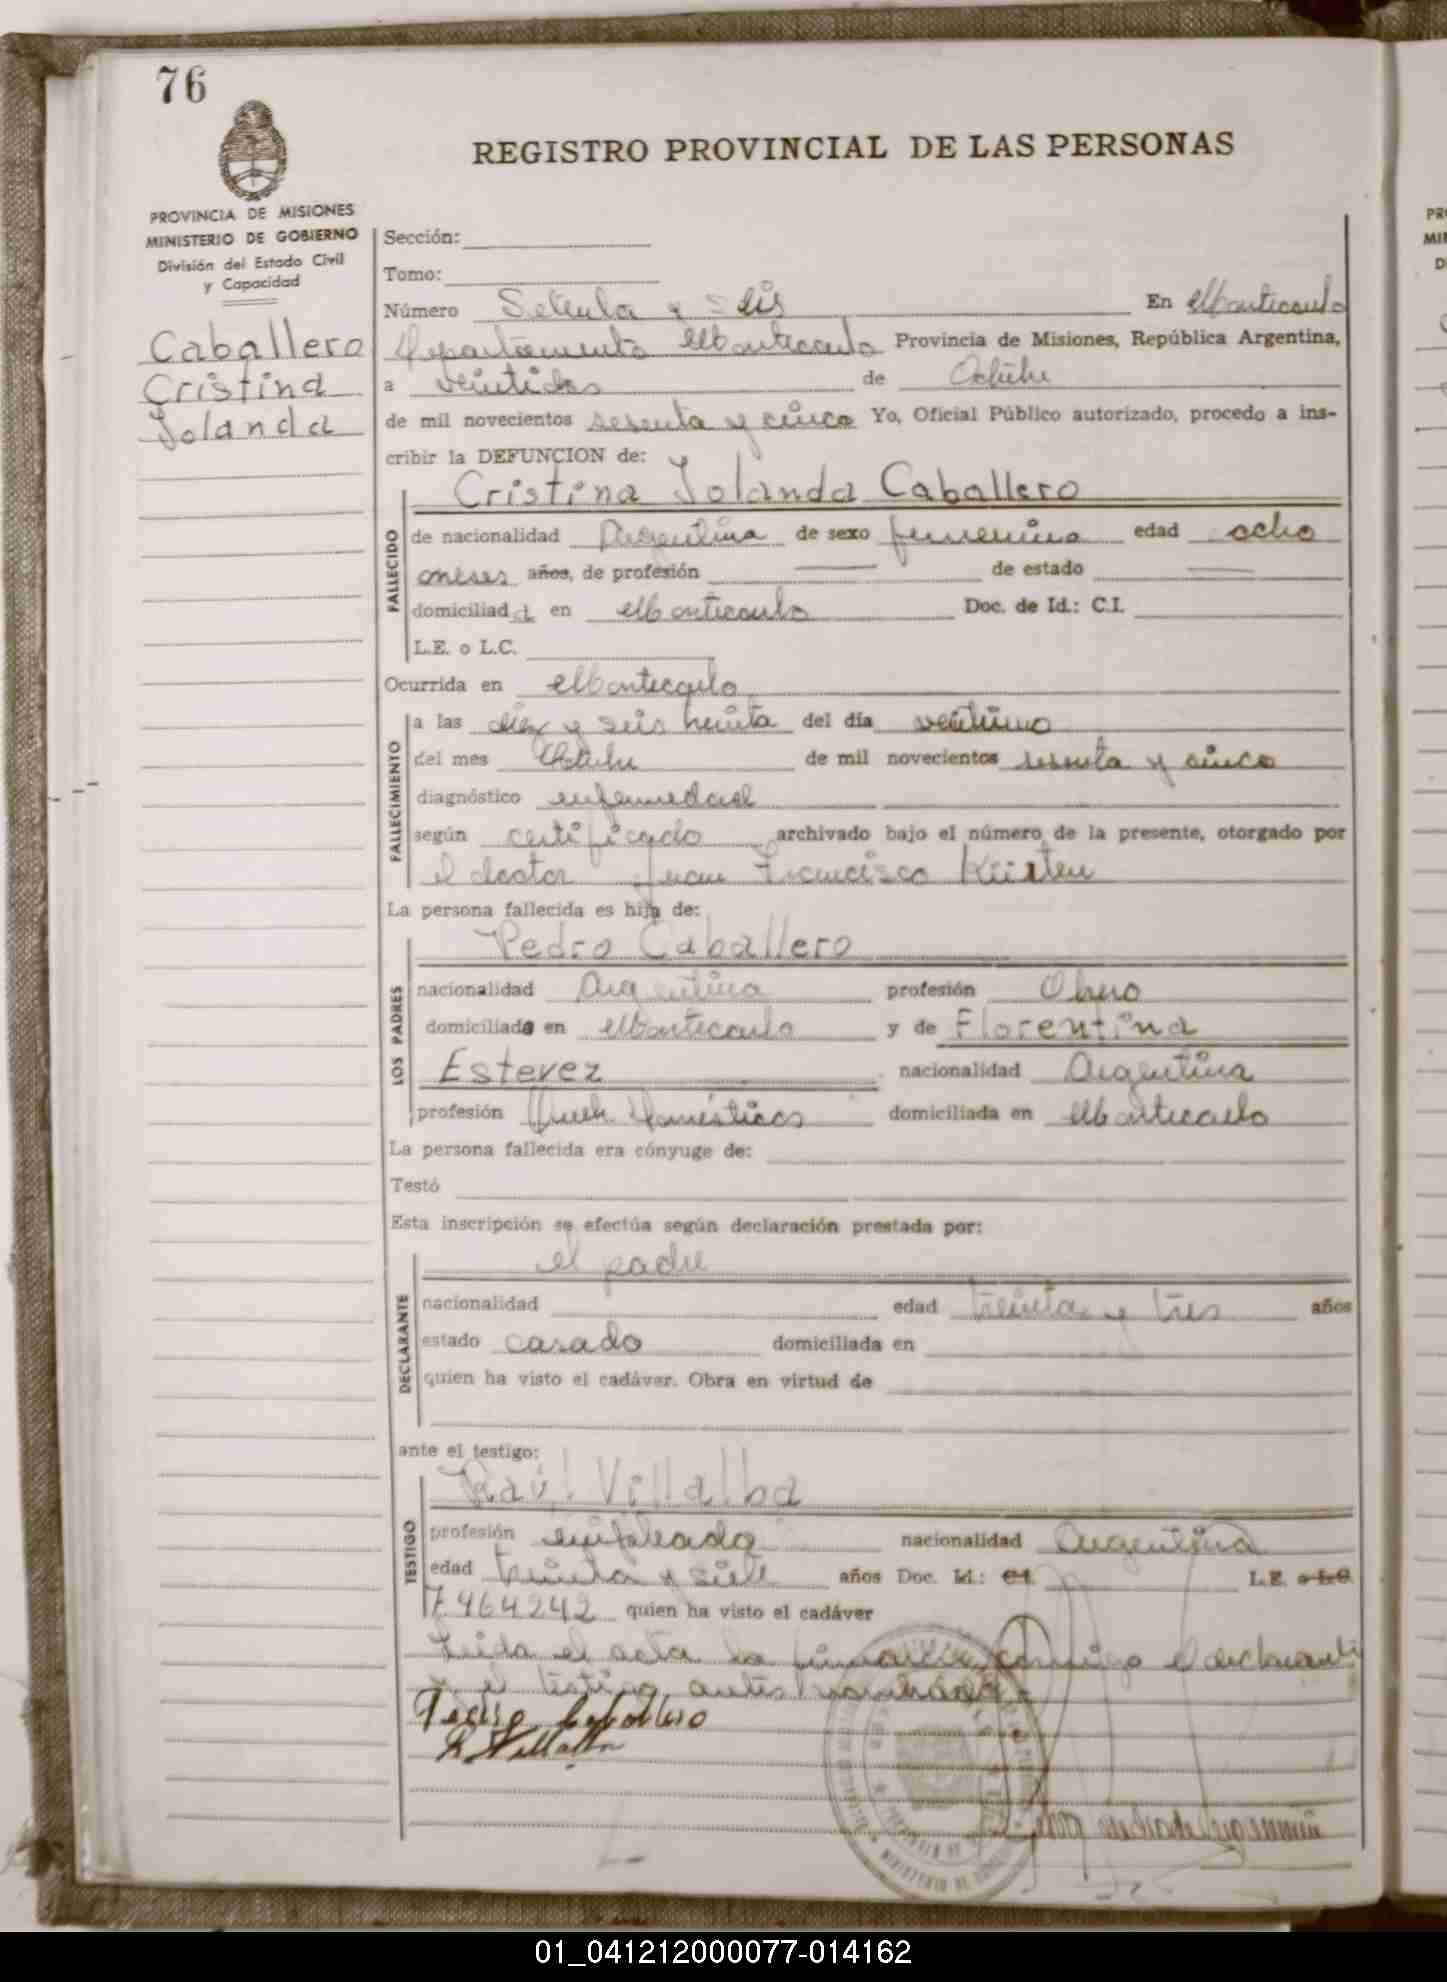 76
REGISTRO PROVINCIAL DE LAS PERSONAS
PROVINCIA DE MISIONES
MINISTERIO DE GOBIERNO
División del Estado Civil
y Capacidad
Caballero
Cristina
Iolanda
Sección:
Tomo:
Número Setenta y seis En Montecarlo
Departamento Montecarlo Provincia de Misiones, República Argentina,
a veintidos de Octubre
de mil novecientos sesenta y cinco Yo, Oficial Público autorizado, procedo a ins-
cribir la DEFUNCION de:
Cristina Iolanda Caballero
FALLECIDO
de nacionalidad Argentina de sexo femenino edad ocho
meses años, de profesión de estado
domiciliada en Montecarlo Doc. de Id.: C.I.
L.E. o L.C.
Ocurrida en Montecarlo
FALLECIMIENTO
a las diez y seis treinta del día veintiuno
del mes Octubre de mil novecientos sesenta y cinco
diagnóstico enfermedad
según certificado archivado bajo el número de la presente, otorgado por
el doctor Juan Francisco Kürten
La persona fallecida es hija de:
LOS PADRES
Pedro Caballero
nacionalidad Argentina profesión Obrero
domiciliado en Montecarlo y de Florentina
Estevez nacionalidad Argentina
profesión Queh. Domésticos domiciliada en Montecarlo
La persona fallecida era cónyuge de:
Testó
Esta inscripción se efectúa según declaración prestada por:
DECLARANTE
el padre
nacionalidad edad treinta y tres años
estado casado domiciliada en
quien ha visto el cadáver. Obra en virtud de
ante el testigo:
TESTIGO
Raúl Villalba
profesión empleado nacionalidad Argentina
edad treinta y siete años Doc. Id.: C.I. L.E. o L.C.
7.464242 quien ha visto el cadáver
Leida el acta la firman conmigo el declarante
y el testigo antes nombrado.-
Pedro Caballero
R. Villalba
MINISTERIO DE
PR
MIN
D
01_041212000077-014162